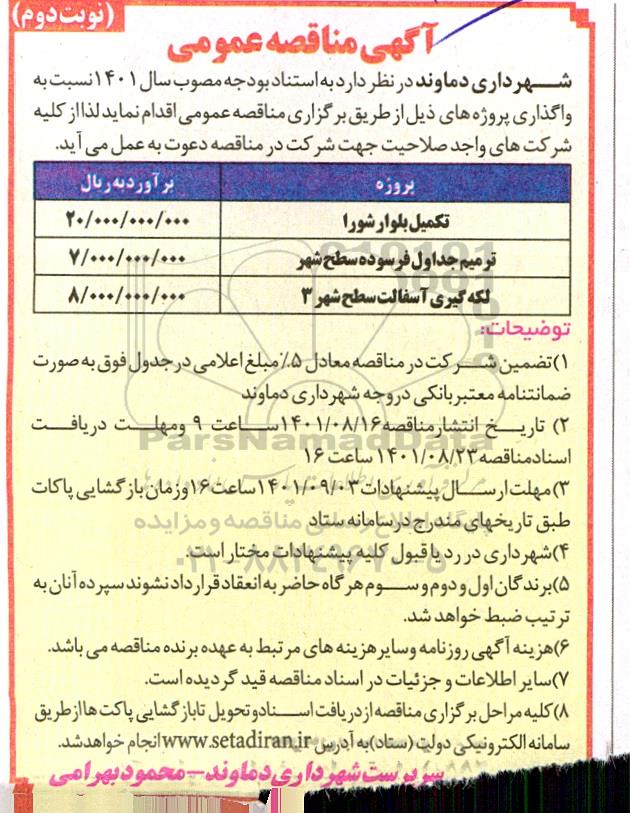 (نوبت دوم)
آگهی مناقصه عمومی
شهرداری دماوند در نظر دارد به استناد بودجه مصوب سال ۱۴۰۱ نسبت به
واگذاری پروژه های ذیل از طریق برگزاری مناقصه عمومی اقدام نماید لذا از کلیه
شرکت های واجد صلاحیت جهت شرکت در مناقصه دعوت به عمل می آید.
پروژه برآورد به ریال
تکمیل بلوار شورا ۲۰/۰۰۰/۰۰۰/۰۰۰
ترمیم جداول فرسوده سطح شهر ۷/۰۰۰/۰۰۰/۰۰۰
لکه گیری آسفالت سطح شهر ۳ ۸/۰۰۰/۰۰۰/۰۰۰
توضیحات:
۱) تضمین شرکت در مناقصه معادل ۵٪ مبلغ اعلامی در جدول فوق به صورت
ضمانتنامه معتبر بانکی در وجه شهرداری دماوند
۲) تاریخ انتشار مناقصه ۱۴۰۱/۰۸/۱۶ ساعت ۹ ومهلت دریافت
اسناد مناقصه ۱۴۰۱/۰۸/۲۳ ساعت ۱۶
ParsNamadData
۳) مهلت ارسال پیشنهادات ۱۴۰۱/۰۹/۰۳ ساعت ۱۶ وزمان بازگشایی پاکات
طبق تاریخهای مندرج در سامانه ستاد
پایگاه اطلاع رسانی مناقصه و مزایده
۴) شهرداری در رد یا قبول کلیه پیشنهادات مختار است.
۵) برندگان اول و دوم و سوم هرگاه حاضر به انعقاد قرارداد نشوند سپرده آنان به
ترتیب ضبط خواهد شد.
۶) هزینه آگهی روزنامه وسایر هزینه های مرتبط به عهده برنده مناقصه می باشد.
۷) سایر اطلاعات و جزئیات در اسناد مناقصه قید گردیده است.
۸) کلیه مراحل برگزاری مناقصه از دریافت اسناد و تحویل تا بازگشایی پاکت ها از طریق
سامانه الکترونیکی دولت (ستاد) به آدرس www.setadiran.ir انجام خواهد شد.
سرپرست شهرداری دماوند - محمود بهرامی